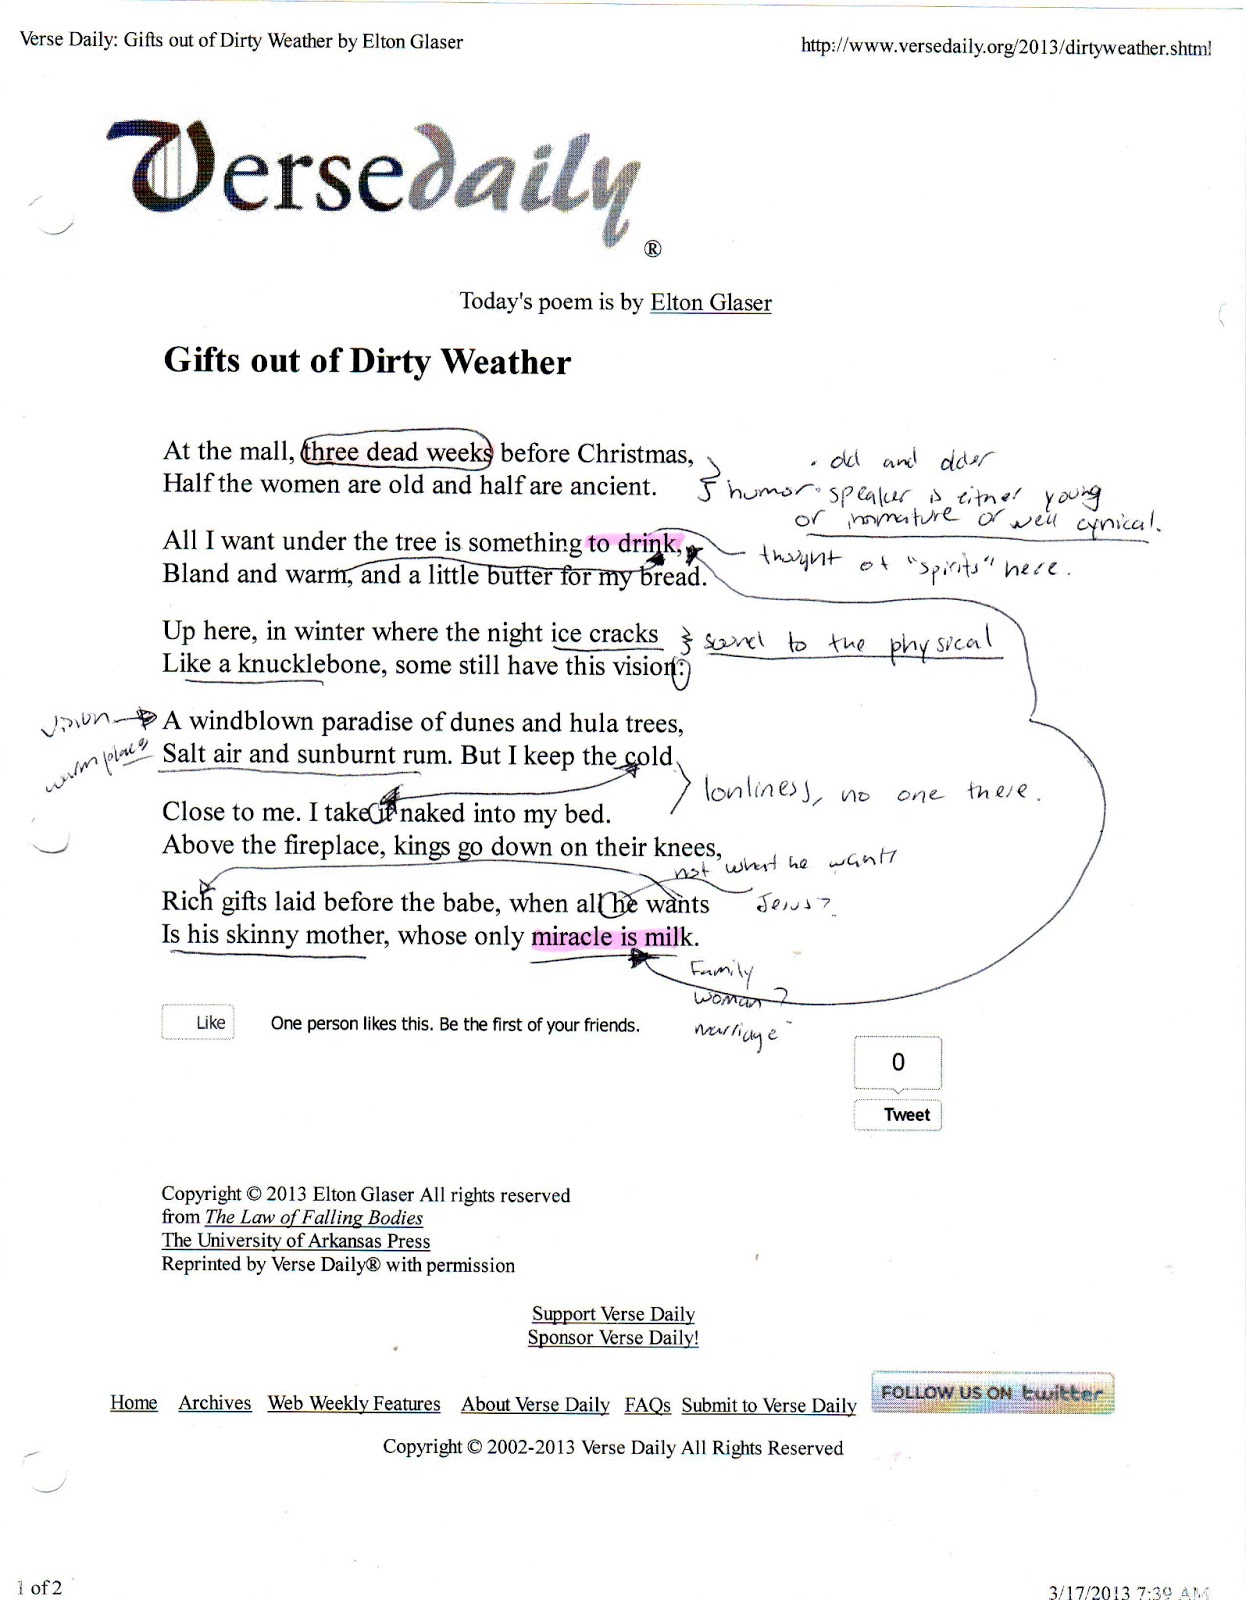 Verse Daily: Gifts out of Dirty Weather by Elton Glaser
http://www.versedaily.org/2013/dirtyweather.shtml
Versedaily
®
Today's poem is by Elton Glaser
Gifts out of Dirty Weather
At the mall, three dead weeks before Christmas,
Half the women are old and half are ancient.
· old and older
humor · speaker is either young
or immature or well cynical.
All I want under the tree is something to drink,
Bland and warm, and a little butter for my bread.
thought of "spirits" here.
Up here, in winter where the night ice cracks
Like a knucklebone, some still have this vision:
sound to the physical
vision
warm place
A windblown paradise of dunes and hula trees,
Salt air and sunburnt rum. But I keep the cold
Close to me. I take it naked into my bed.
Above the fireplace, kings go down on their knees,
lonliness, no one there.
not what he wants
Rich gifts laid before the babe, when all he wants
Is his skinny mother, whose only miracle is milk.
Jesus?
Family
woman?
marriage
Like
One person likes this. Be the first of your friends.
0
Tweet
Copyright © 2013 Elton Glaser All rights reserved
from The Law of Falling Bodies
The University of Arkansas Press
Reprinted by Verse Daily® with permission
Support Verse Daily
Sponsor Verse Daily!
Home Archives Web Weekly Features About Verse Daily FAQs Submit to Verse Daily
FOLLOW US ON twitter
Copyright © 2002-2013 Verse Daily All Rights Reserved
1 of 2
3/17/2013 7:39 AM